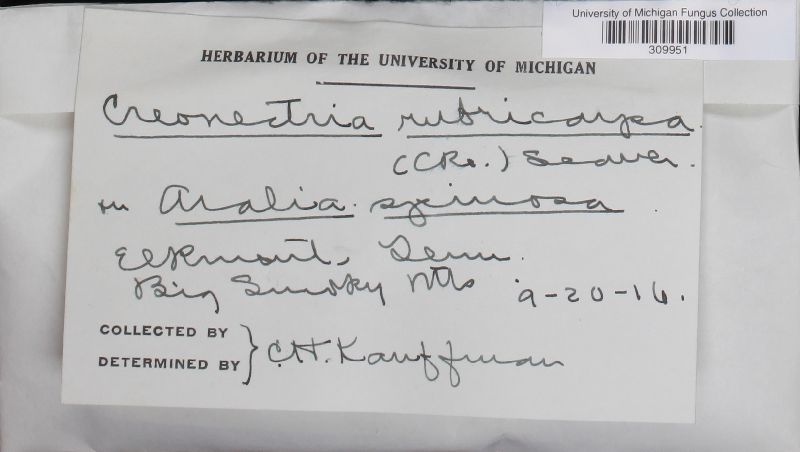 University of Michigan Fungus Collection
309951
HERBARIUM OF THE UNIVERSITY OF MICHIGAN
Creonectria rubricarpa
(CKe.) Seaver.
on Aralia spinosa.
Elkmont, Tenn.
Big Smoky Mts 9-20-16.
COLLECTED BY
DETERMINED BY } C.H. Kauffman